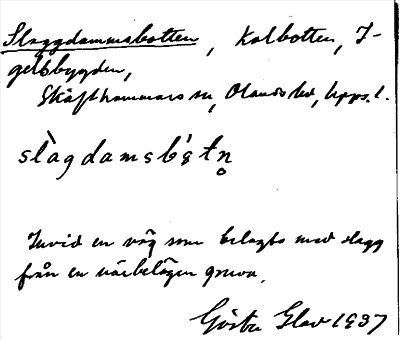 Slaggdammsbotten, Kolbotten, I-
gelsbygden,
Skäfthammars sn, Olands hd, Upps. l.
slàgdamsbɷ́tn̥
Invid en väg som belagts med slagg
från en närbelägen gruva.
Gösta Glad 1937